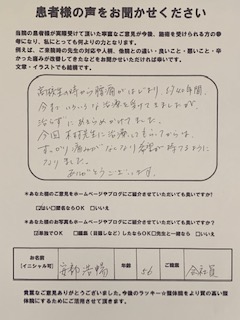 患者様の声をお聞かせください
当院の患者様が実際受けて頂いた率直なご意見が今後、施術を受けられる方の参
考になり、私にとっても何よりの力となります。
例えば、ご来院時の先生の対応や人柄、他院との違い・良いこと・悪いこと・辛
かった痛みが改善してきたなどをお聞かせいただければ幸いです。
文章・イラストでも結構です。
高校生の時から腰痛がはじまり、
今までいろいろな治療を受けてきましたが、
治らずにあきらめかけてました。
今回、木村先生に治療してもらってからは、
すっかり痛みがなくなり希望が持てるように
なりました。
ありがとうございます。
*あなた様のご意見をホームページやブログにご紹介させていただいても良いですか?
□はい □匿名ならOK □いいえ
*あなた様のお写真もホームページやブログにご紹介させていただいても良いですか?
□単独でOK □横顔(目隠し など)したならOK □先生と一緒なら □いいえ
お名前
(イニシャル可)
年齢
56
ご職業
会社員
貴重なご意見ありがとうございました。今後のラッキー☆整体院をより質の高い整
体院にするためにご活用させて頂きます。